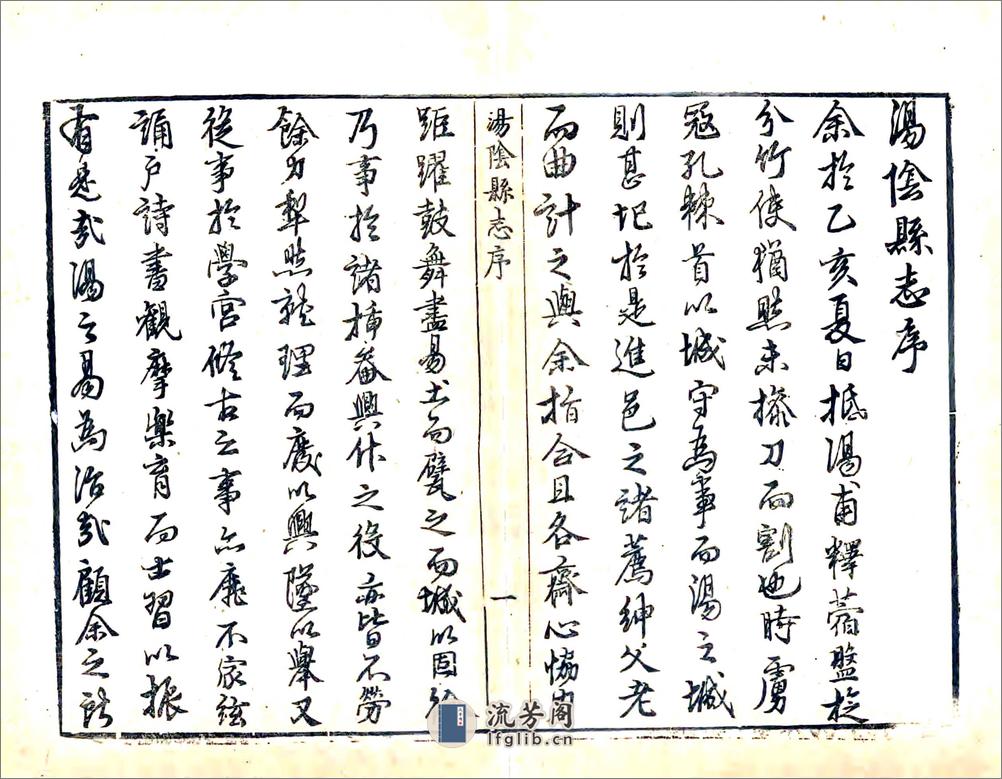 湯陰縣志序
余於乙亥夏日抵湯甫釋蒞盬於
分竹使猶然未操刀而割也時虜
寇孔棘首以城守為事而湯之城
則甚圮於是進邑之諸薦紳父老
而曲計之與余指合且各齋心協
湯陰縣志序
一
距躍鼓舞盡易土而甓之而城以固
乃事於諸插畚興作之役亦皆不勞
餘力犁然就理而廢以興墜以舉又
從事於學宮脩古之事亦靡不家絃
誦戶詩書觀摩樂育而士習以振
有是哉湯之易為治哉顧余之
流芳阁
lfglib.cn